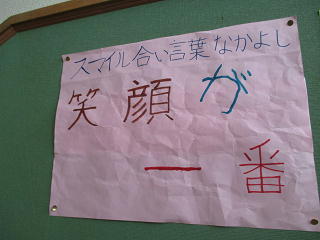 スマイル合い言葉なかよし
笑顔が
一番